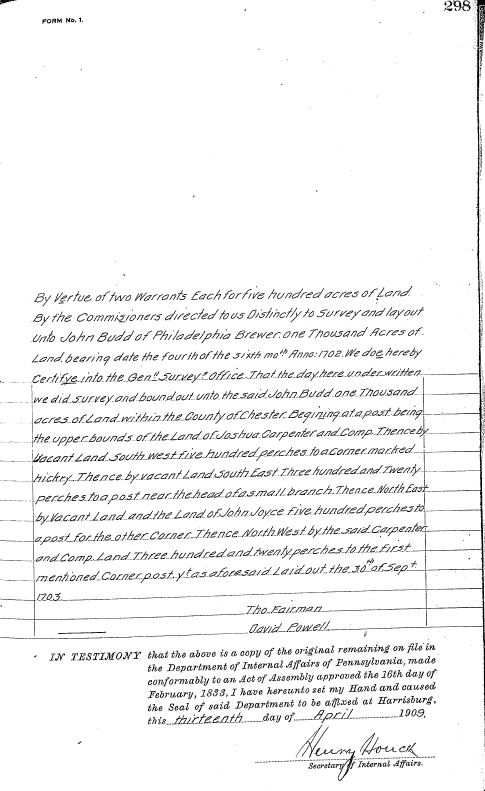 298
FORM No. 1.
By Vertue of two Warrants Each for five hundred acres of Land
By the Commizioners directed to us Distinctly to Survey and layout
unto John Budd of Philadelphia Brewer. one Thousand Acres of
Land. bearing date the fourth of the sixth moth Anno: 1702. We doe hereby
Certifye into the Genll Surveyrs Office. That the day here under written
we did survey and bound out unto the said John Budd one Thousand
acres of Land within the County of Chester. Begining at a post being
the upper bounds of the Land of Joshua Carpenter and Comp. Thence by
Vacant Land South West five hundred perches to a Corner marked
hickry. Thence by vacant Land South East Three hundred and Twenty
perches to a post near the head of a small branch. Thence North East
by Vacant Land and the Land of John Joyce five hundred perches to
a post for the other Corner. Thence North West by the said Carpenter
and Comp. Land Three hundred and twenty perches to the first
mentioned Corner post. yt as aforesaid Laid out the 30th of Sept
1703.
Tho Fairman
David Powell
IN TESTIMONY that the above is a copy of the original remaining on file in
the Department of Internal Affairs of Pennsylvania, made
conformably to an Act of Assembly approved the 16th day of
February, 1833, I have hereunto set my Hand and caused
the Seal of said Department to be affixed at Harrisburg,
this thirteenth day of April 1909.
Henry Houck
Secretary of Internal Affairs.